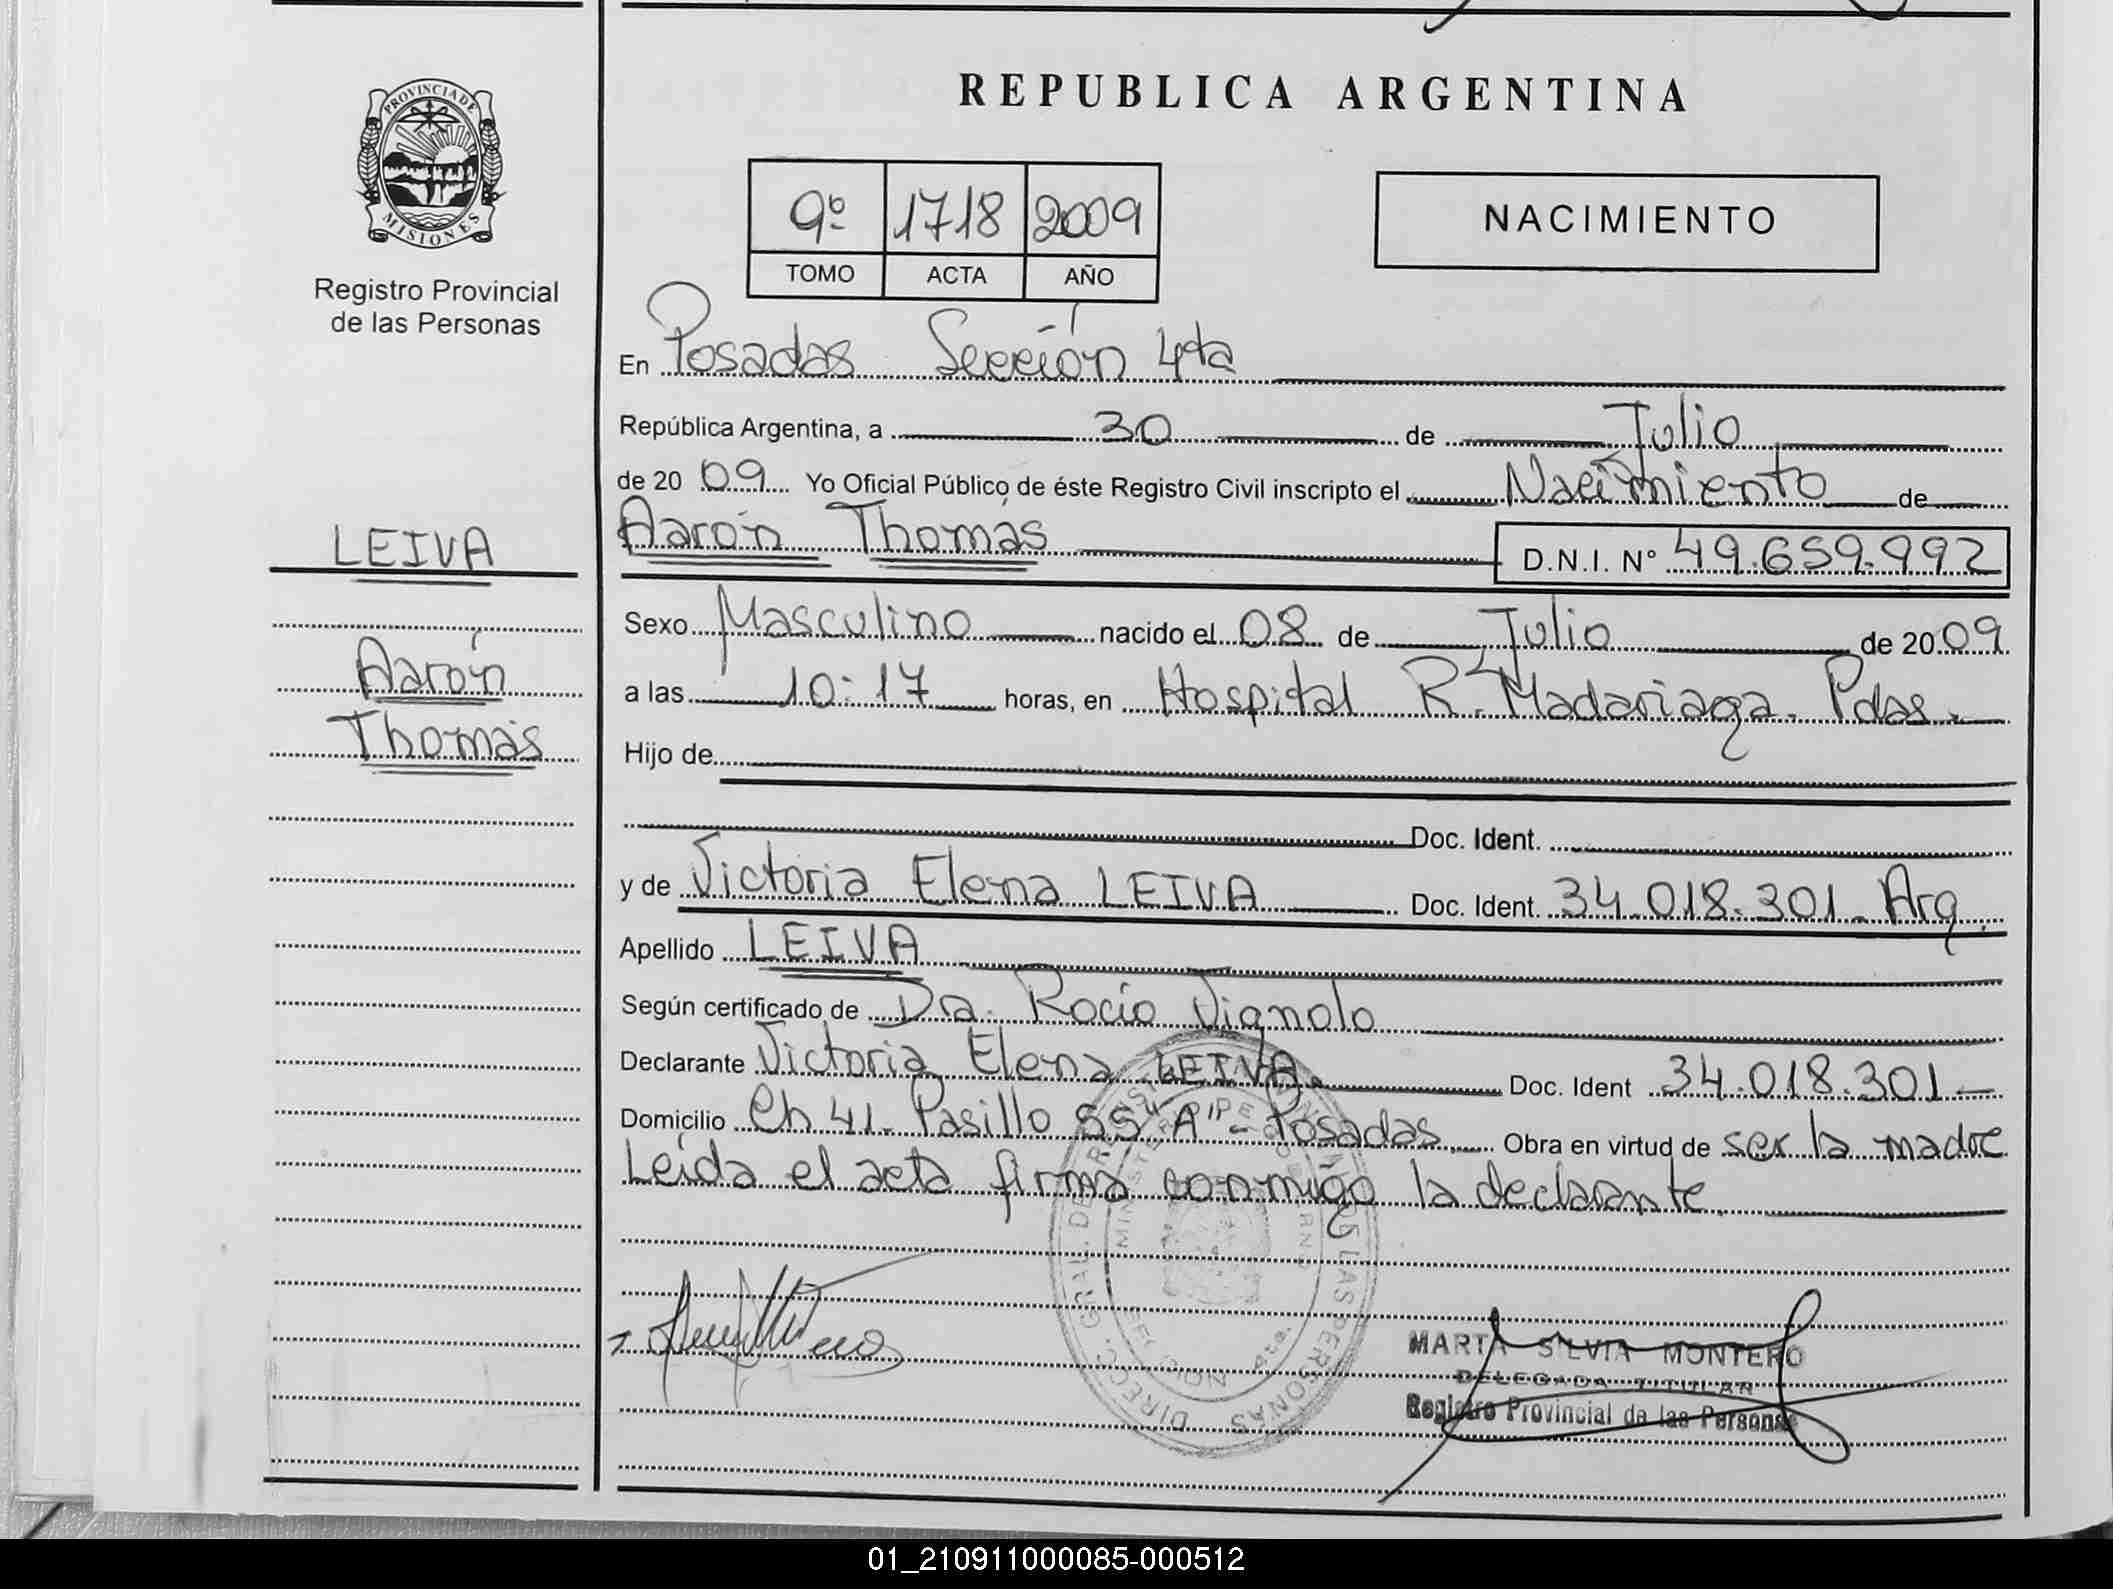 PROVINCIA DE
MISIONES
Registro Provincial
de las Personas
LEIVA
Aarón
Thomás
REPUBLICA ARGENTINA
9º 1718 2009
TOMO ACTA AÑO
NACIMIENTO
En Posadas Sección 4ta
República Argentina, a 30 de Julio
de 20 09 Yo Oficial Público de éste Registro Civil inscripto el Nacimiento de
Aarón Thomás D.N.I. Nº 49.659.992
Sexo Masculino nacido el 08 de Julio de 20 09
a las 10:17 horas, en Hospital R. Madariaga. Pdas.
Hijo de
Doc. Ident.
y de Victoria Elena LEIVA Doc. Ident. 34.018.301. Arg.
Apellido LEIVA
Según certificado de Dra. Rocío Vignolo
Declarante Victoria Elena LEIVA. Doc. Ident 34.018.301-
Domicilio Ch 41. Pasillo 55 "A" - Posadas Obra en virtud de ser la madre
Leída el acta firma conmigo la declarante.
MARTA SILVIA MONTERO
DELEGADA TITULAR
Registro Provincial de las Personas
01_210911000085-000512